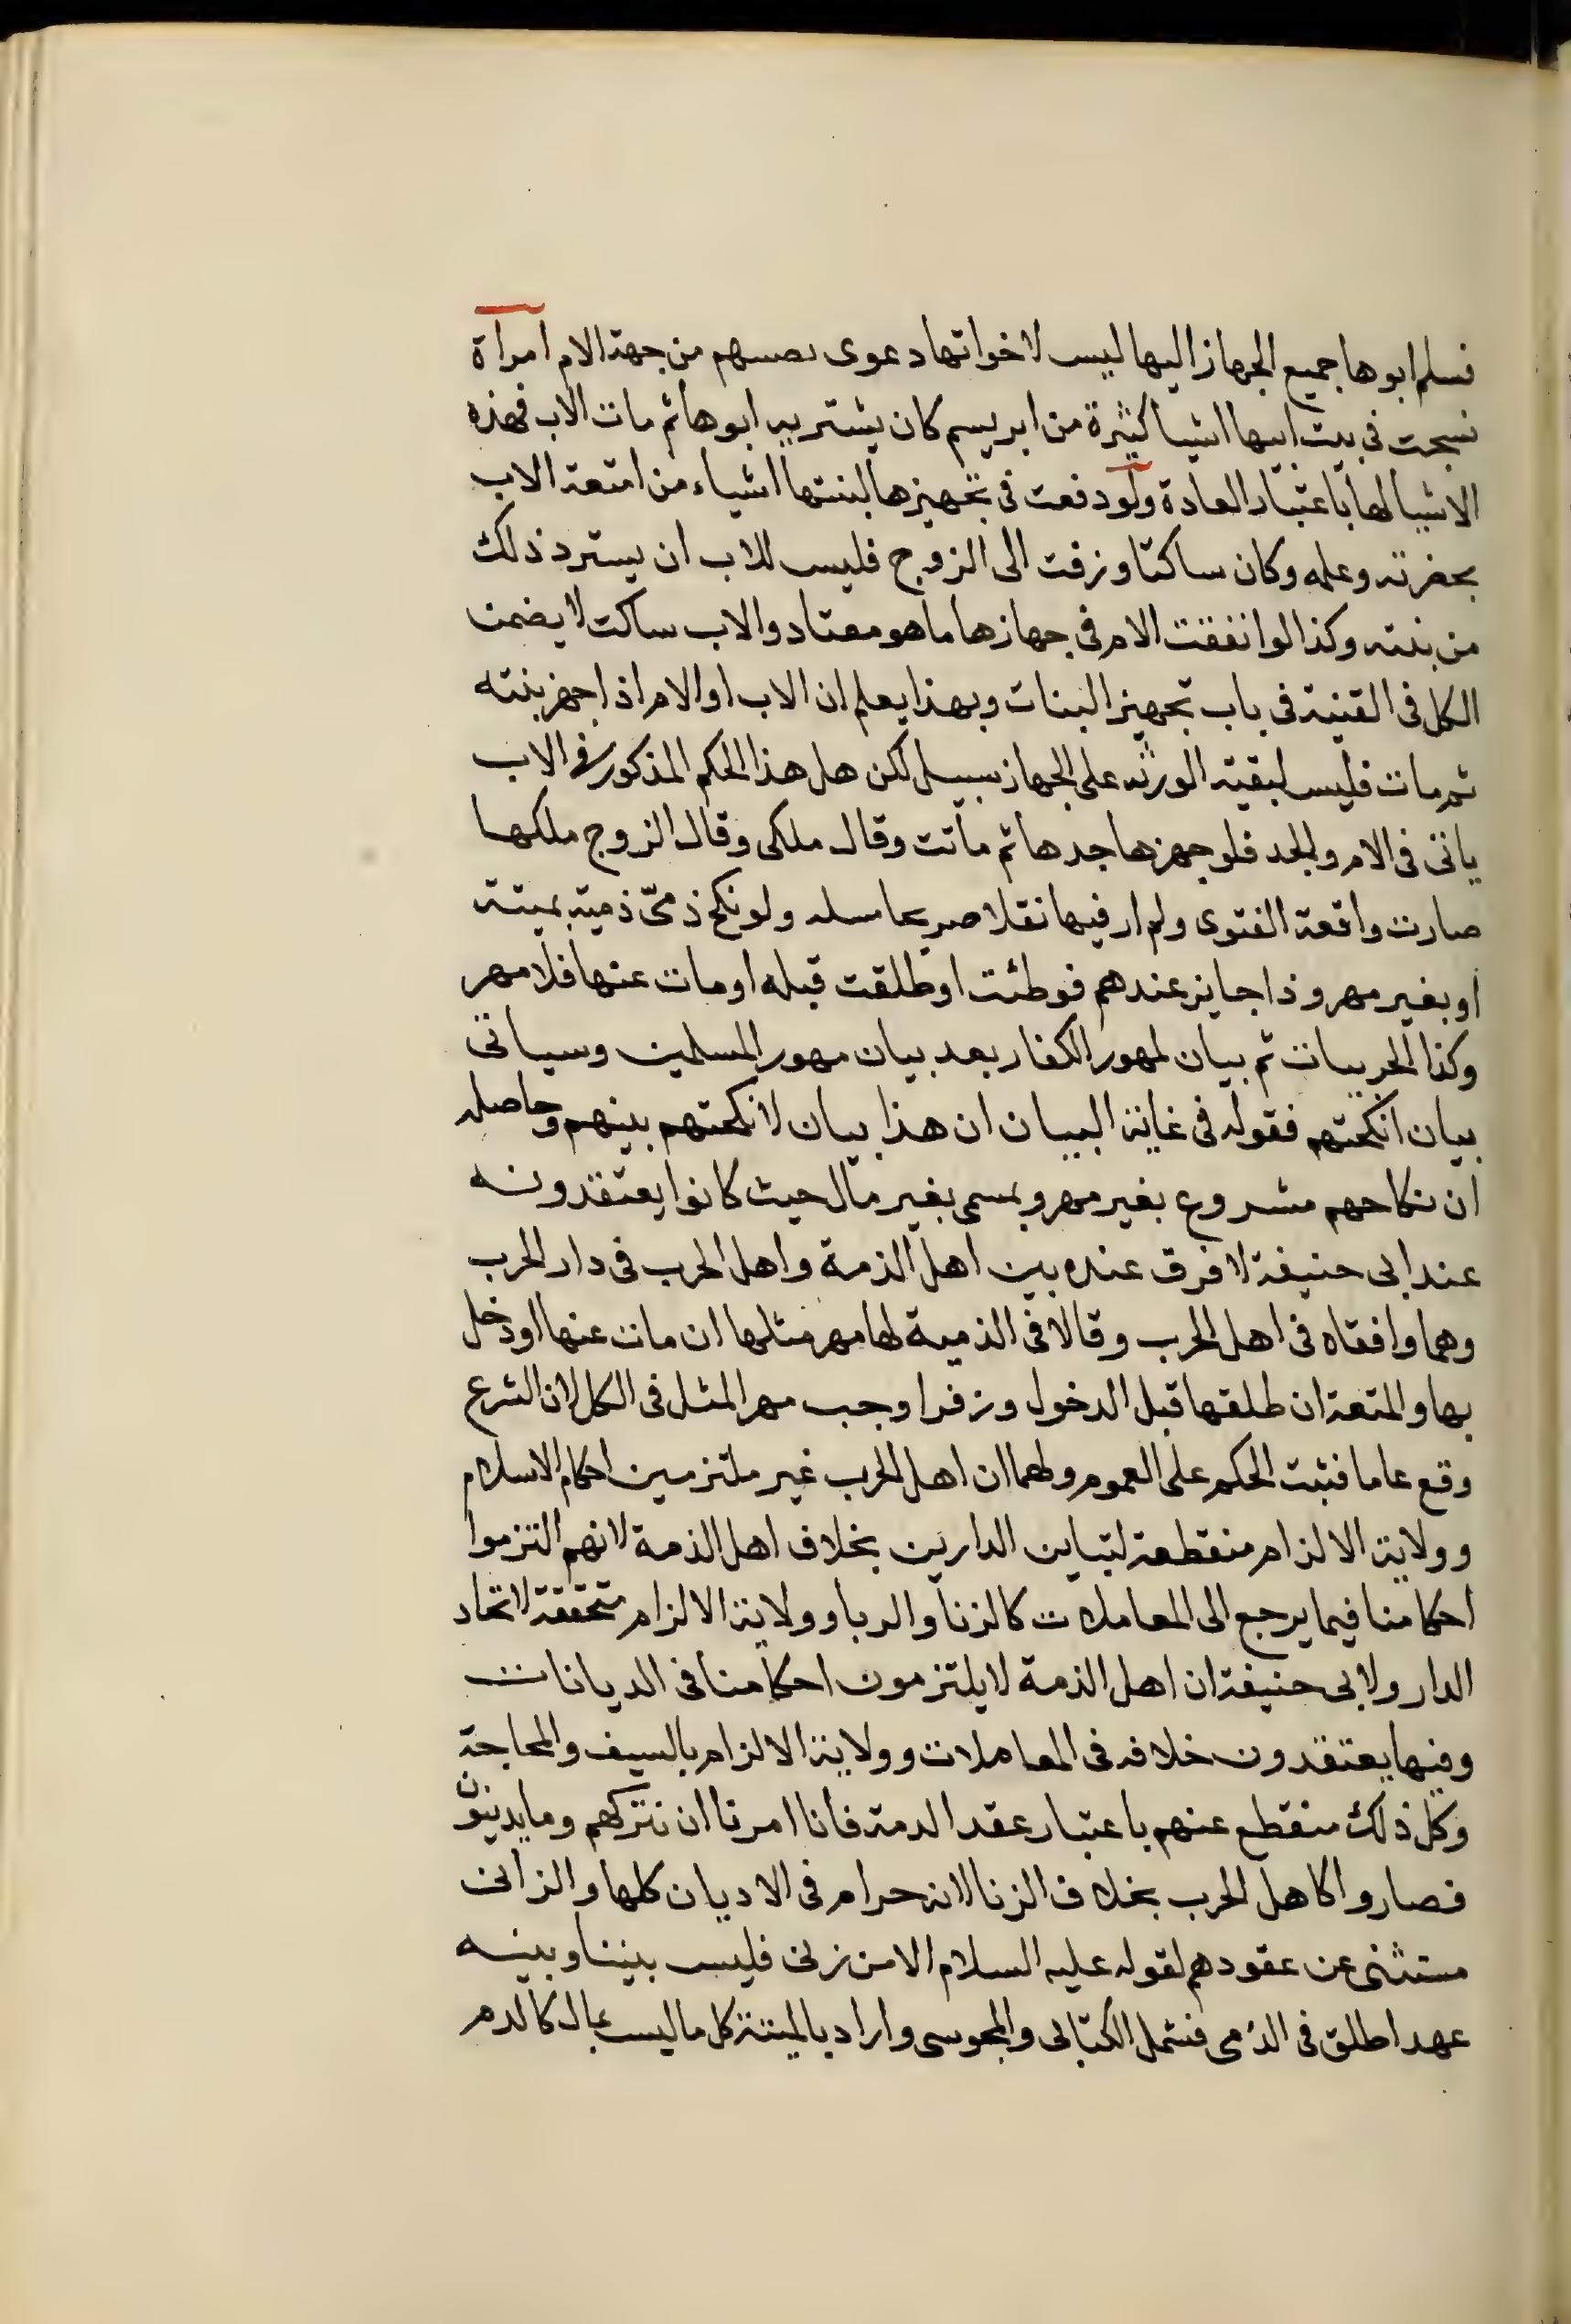 فسلم ابوها جميع الجهاز اليها ليس لاخواتها دعوى نصيبهم من جهة الام امرأة
نسجت فى بيت ابيها اشيا كثيرة من ابريسم كان يشتريه ابوها ثم مات الاب فهذه
الاشيا لها باعتبار العادة ولو دفعت فى تجهيزها لبنتها اشياء من امتعة الاب
بحضرته وعلمه وكان ساكتا وزفت الى الزوج فليس للاب ان يسترد ذلك
من بنته وكذا لو انفقت الام فى جهازها ما هو معتاد والاب ساكت لا يضمن
الكل فى القنية فى باب تجهيز البنات وبهذا يعلم ان الاب او الام اذا جهز بنته
ثم مات فليس لبقية الورثة على الجهاز سبيل لكن هل هذا الحكم المذكور فى الاب
ياتى فى الام والجد فلو جهزها جدها ثم ماتت وقال ملكى وقال الزوج ملكها
صارت واقعة الفتوى ولم ار فيها نقلا صريحا ولو نكح ذمى ذمية بميتة
او بغير مهر وذا جايز عندهم فوطئت او طلقت قبله او مات عنها فلا مهر
وكذا الحربيان ثم بيان لمهور الكفار بعد بيان مهور المسلمين وسياتى
بيان انكحتهم فقوله فى غاية البيان ان هذا بيان لانكحتهم بينهم وحاصله
ان نكاحهم مشروع بغير مهر وبمسمى بغير مال حيث كانوا يعتقدونه
عند ابى حنيفة لا فرق عنده بين اهل الذمة واهل الحرب فى دار الحرب
وهما وافقاه فى اهل الحرب وقالا فى الذمية لها مهر مثلها ان مات عنها او دخل
بها والمتعة ان طلقها قبل الدخول وزفر اوجب مهر المثل فى الكل لان الشرع
وقع عاما فثبت الحكم على العموم ولهما ان اهل الحرب غير ملتزمين احكام الاسلام
وولاية الالزام منقطعة لتباين الدارين بخلاف اهل الذمة لانهم التزموا
احكامنا فيما يرجع الى المعاملات كالزنا والربا وولاية الالزام متحققة لاتحاد
الدار ولابى حنيفة ان اهل الذمة لا يلتزمون احكامنا فى الديانات
وفيها يعتقدون خلافه فى المعاملات وولاية الالزام بالسيف والمحاجة
وكل ذلك منقطع عنهم باعتبار عقد الدمة فانا امرنا ان نتركهم وما يدينون
فصاروا كاهل الحرب بخلاف الزنا لانه حرام فى الاديان كلها والزانى
مستثنى عن عقودهم لقوله عليه السلام الا من زنى فليس بيننا وبينه
عهد اطلق فى الذمى فشمل الكتابى والمجوسى واراد بالميتة كل ما ليس بمال كالدم